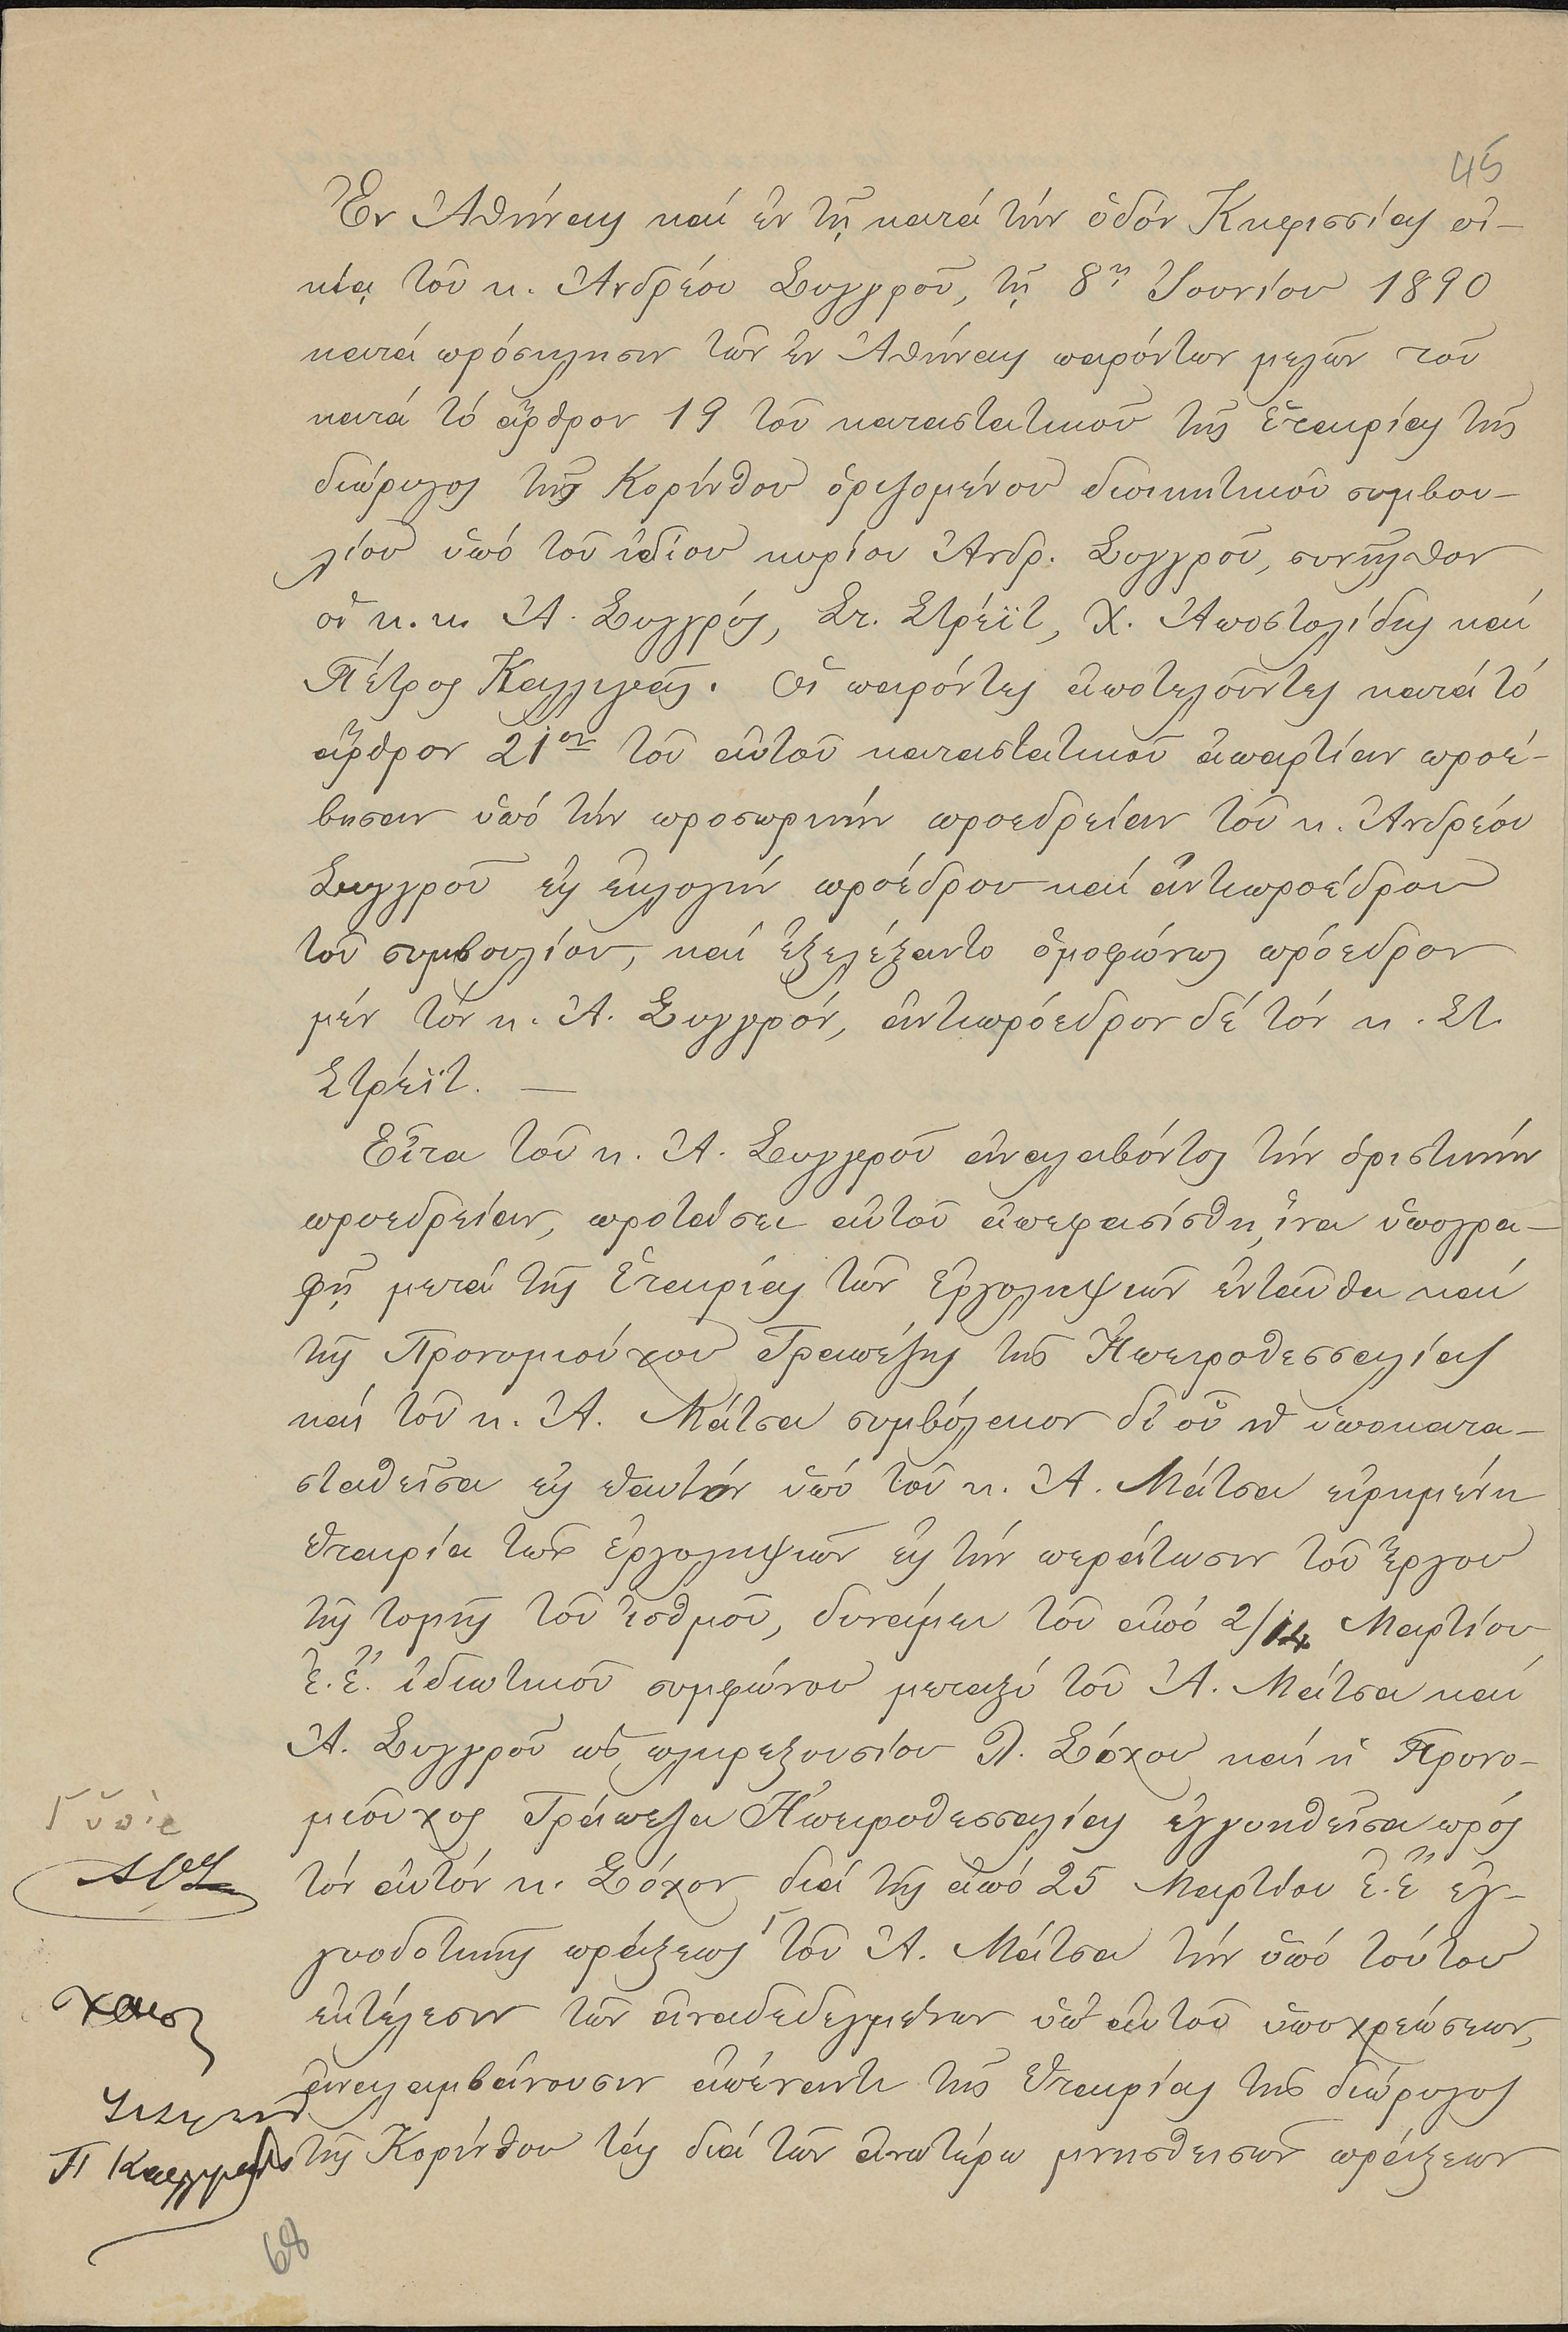 45
Ἐν Ἀθήναις καί ἐν τῇ κατά τήν ὁδόν Κηφισσίας οἰ-
κίᾳ τοῦ κ. Ἀνδρέου Συγγροῦ, τῇ 8ῃ Ἰουνίου 1890
κατά πρόσκλησιν τῶν ἐν Ἀθήναις παρόντων μελῶν τοῦ
κατά τό ἄρθρον 19 τοῦ καταστατικοῦ τῆς Ἑταιρίας τῆς
διώρυγος τῆς Κορίνθου ὁριζομένου διοικητικοῦ συμβου-
λίου ὑπό τοῦ ἰδίου κυρίου Ἀνδρ. Συγγροῦ, συνῆλθον
οἱ κ.κ. Ἀ. Συγγρός, Στ. Στρέϊτ, Χ. Ἀποστολίδης καί
Πέτρος Καλλιγᾶς. Οἱ παρόντες ἀποτελοῦντες κατά τό
ἄρθρον 21ον τοῦ αὐτοῦ καταστατικοῦ ἀπαρτίαν προέ-
βησαν ὑπό τήν προσωρινήν προεδρείαν τοῦ κ. Ἀνδρέου
Συγγροῦ εἰς ἐκλογήν προέδρου καί ἀντιπροέδρου
τοῦ συμβουλίου, καί ἐξελέξαντο ὁμοφώνως πρόεδρον
μέν τόν κ. Ἀ. Συγγρόν, ἀντιπρόεδρον δέ τόν κ. Στ.
Στρέϊτ. —
Εἶτα τοῦ κ. Ἀ. Συγγροῦ ἀναλαβόντος τήν ὁριστικήν
προεδρείαν, προτάσει αὐτοῦ ἀπεφασίσθη, ἵνα ὑπογρα-
φῇ μετά τῆς Ἑταιρίας τῶν Ἐργοληψιῶν ἐνταῦθα καί
τῆς Προνομιούχου Τραπέζης τῆς Ἠπειροθεσσαλίας
καί τοῦ κ. Ἀ. Μάτσα συμβόλαιον δι' οὗ ἡ ὑποκατα-
σταθεῖσα εἰς ἑαυτόν ὑπό τοῦ κ. Ἀ. Μάτσα εἰρημένη
ἑταιρία τῶν ἐργοληψιῶν εἰς τήν περάτωσιν τοῦ ἔργου
τῆς τομῆς τοῦ ἰσθμοῦ, δυνάμει τοῦ ἀπό 2/14 Μαρτίου
ἐ.ἔ. ἰδιωτικοῦ συμφώνου μεταξύ τοῦ Ἀ. Μάτσα καί
Ἀ. Συγγροῦ ὡς πληρεξουσίου Λ. Σόχου καί ἡ Προνο-
μιοῦχος Τράπεζα Ἠπειροθεσσαλίας ἐγγυηθεῖσα πρός
τόν αὐτόν κ. Σόχον διά τῆς ἀπό 25 Μαρτίου ἐ.ἔ ἐγ-
γυοδοτικῆς πράξεως Γ τοῦ Ἀ. Μάτσα τήν ὑπό τούτου
ἐκτέλεσιν τῶν ἀναδεδεγμένων ὑπ' αὐτοῦ ὑποχρεώσεων,
ἀναλαμβάνουσιν ἀπέναντι τῆς Ἑταιρίας τῆς διώρυγος
τῆς Κορίνθου τάς διά τῶν ἀνωτέρω μνησθεισῶν πράξεων
Γ ὑπὲρ
Π Καλλιγᾶς
68